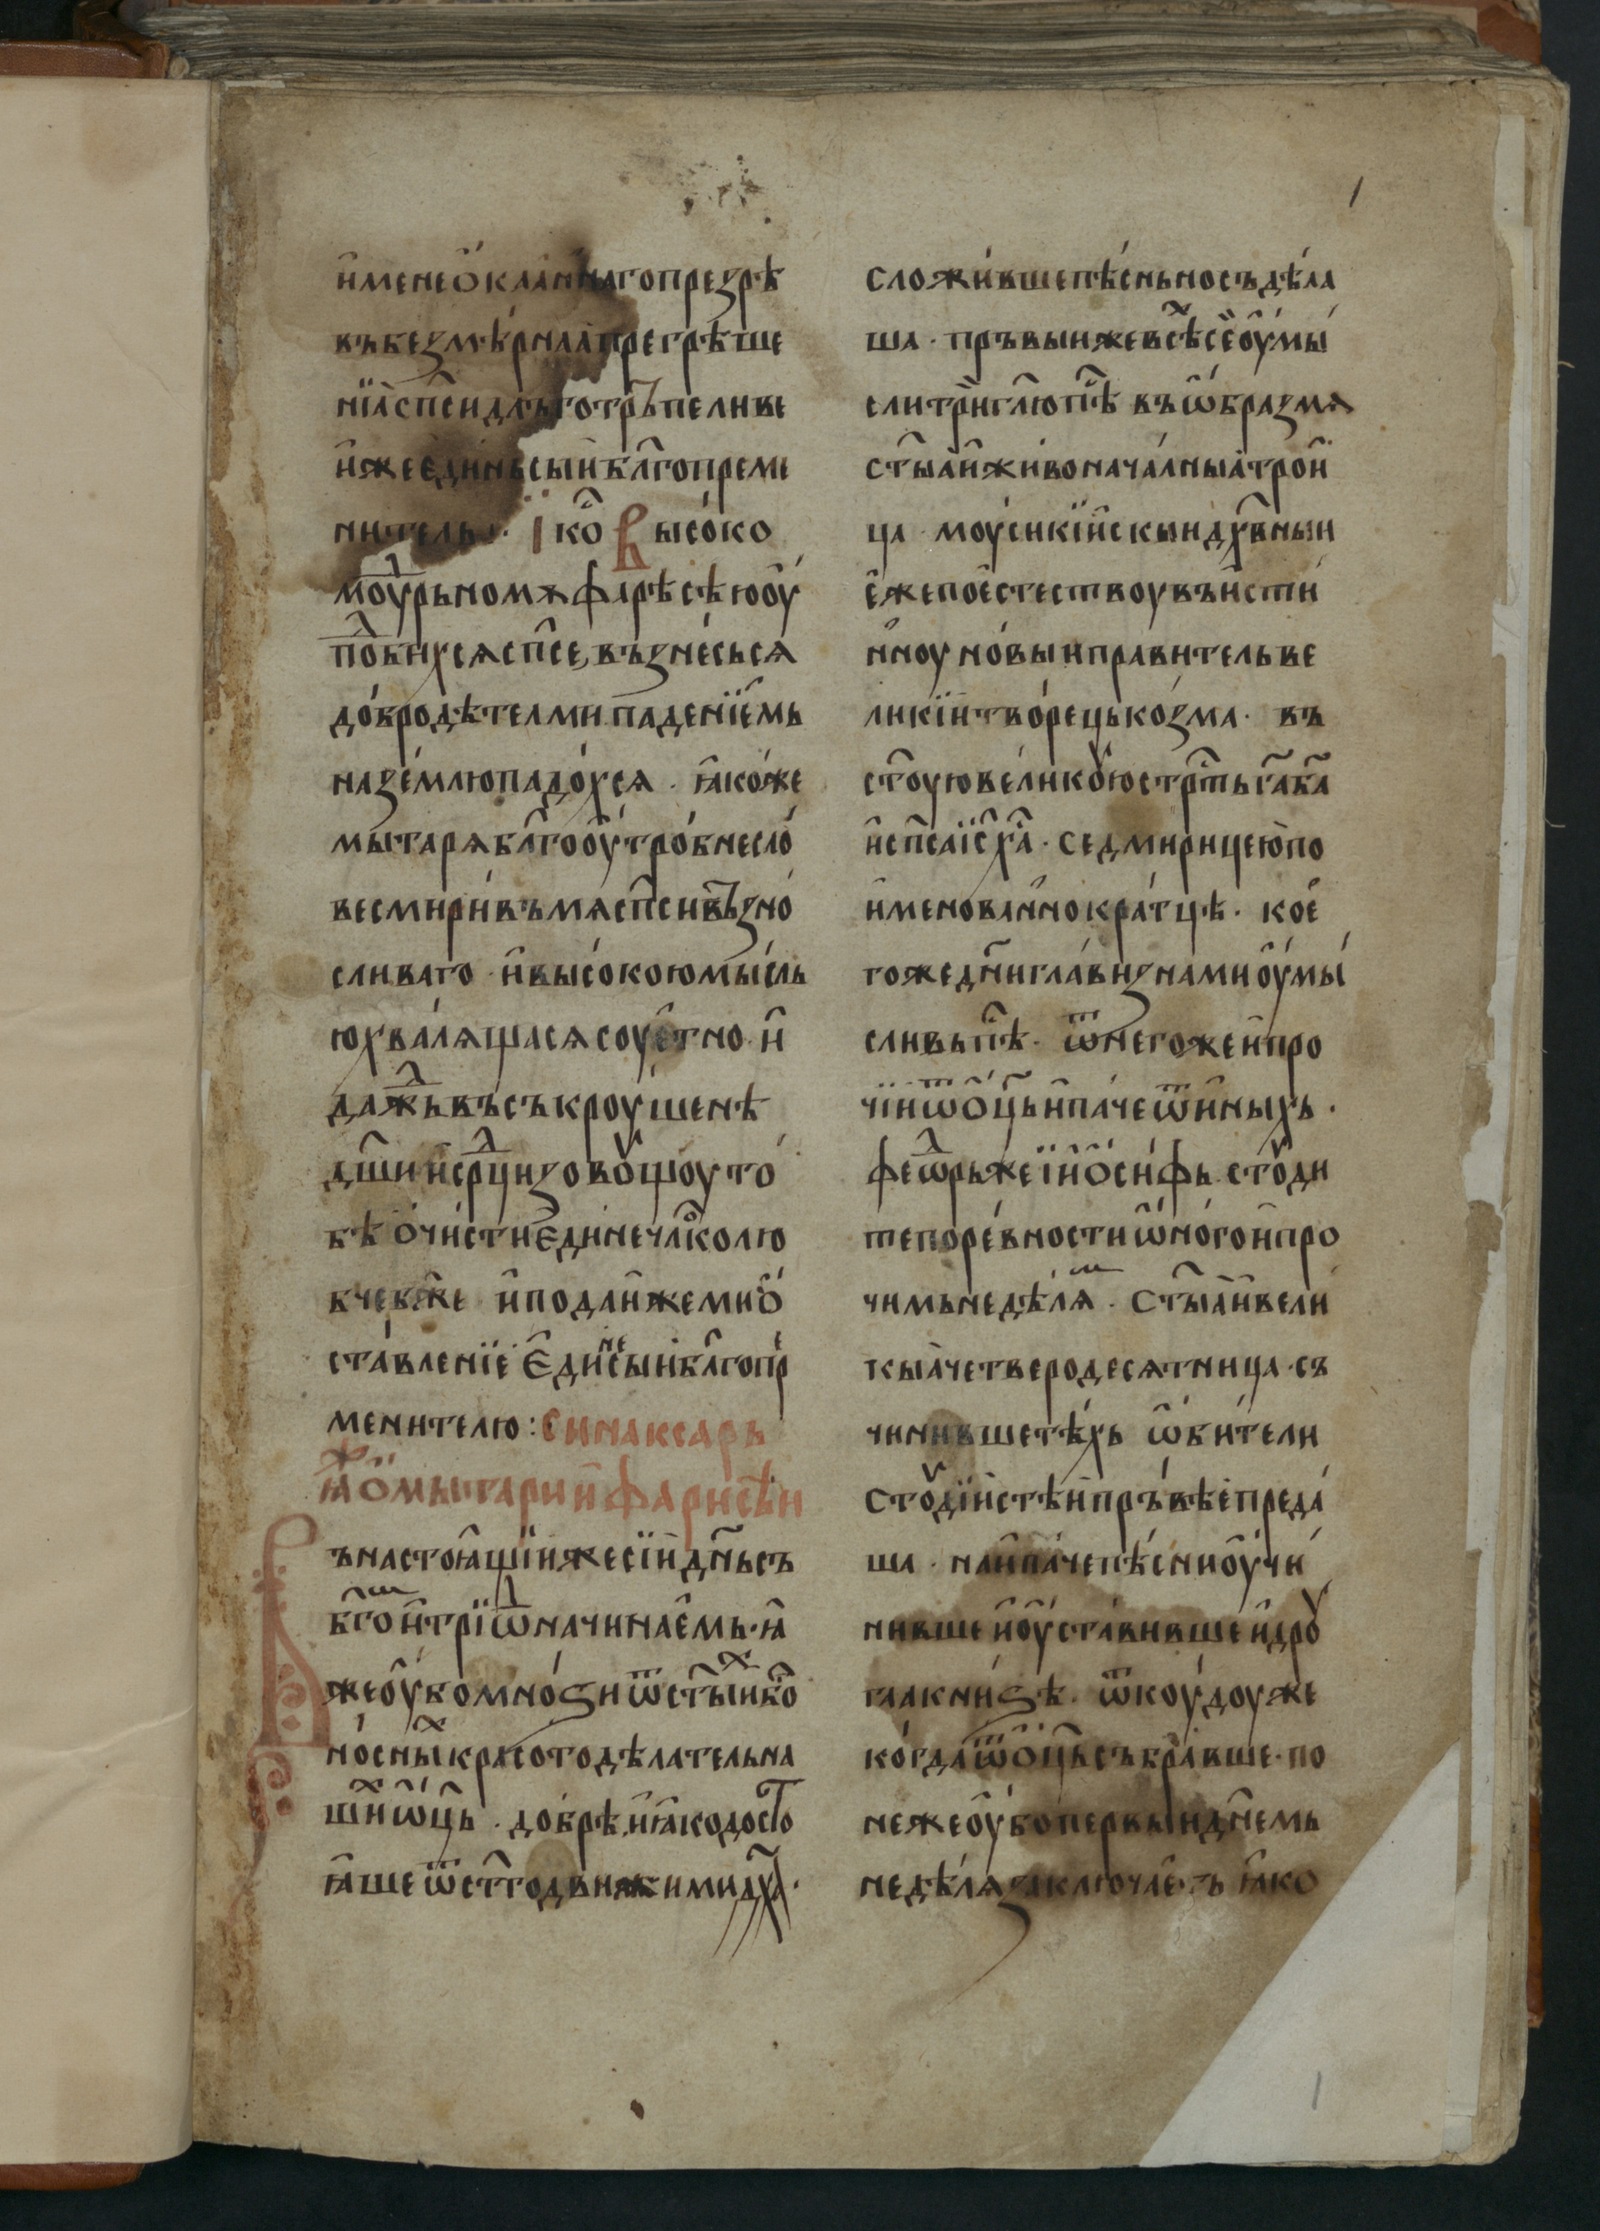 и҆мене ѻ҆каа́ннаго презрѣ
въ безмѣ́рнаа прегрѣше
нїа̀ сп҃си длъготръпеливе
и҆же є҆ди́нь сый бл҃гопреме
нитель · І҆ко҆ Высо́ко
моу́дрьномѫ фарѣсѣю оу҆
подо́бихсѧ сп҃се, възне́сьсѧ
до́бродѣтелми. паденїе҆мь
на зе́млю падо́хсѧ . ꙗ҆ко́же
мытарѧ бл҃гооу҆тро́бне сло́
ве смири́въ мѧ сп҃си възно́
сливаго . и҆ высо́кою мы́сль
ю хва́лѧщасѧ соуе҆тно . и҆
даждь въ съкроуше́нѣ
дш҃и и҆ срдци зовꙋщоу то́
бѣ ѻ҆чи́сти є҆ди́не чл҃колю
бче бж҃е и҆ пода́и҆же ми ѻ҆
ста́вленїе є҆ди́не сы́и бл҃гопре
менителю : синаксарь
ꙗже ѻ҆ мытари и҆ фарисѣи
Въ настоѧ҆щїи же сїи дн҃ь съ
бг҃омь и҆ трїѡдь начинае҆мь · ꙗ҆
же оу҆бо мно́ѕи ѿ ст҃ы́хъ и҆ бг҃о
но́сныхъ красотодѣлательна
ши́хъ ѡц҃ь . добрѣ и҆ ꙗ҆ко досто
ꙗ҆ше ѿ ст҃го движими дх҃а .
сложи́вше пѣ́сньно съдѣ́ла
ша . пръвыи же всѣхъ се҆ оу҆мы́
сли трїи гл҃ю пѣ́снѣ въ ѡ҆́бразмѧ
ст҃ыа и҆ живонача́лныа трои҆
ца . моусикїи҆скыи дх҃вный
е҆же по е҆стествоу въи҆сти
нноу но́выи правитель ве
ликїи творець ко́зма . въ
ст҃оую вели́кꙋю стрсть г҃а б҃а
и҆ сп҃са і҆с х҃а . седмирицею по
и҆мено́ванно кра́тцѣ . кое҆
гоже дн҃и гла́визнами оу҆мы́
сливь пѣ́снѣ . ѿ него́же и҆ про
чїи ѿ ѻ҆ц҃ь и҆ па́че ѿ и҆ныхь .
феѡдрь же і҆ и҆ѻ҆си́фь . стꙋди
те по ре́вности ѡ҆ного и҆ про
чимь недѣ́лѧмь . ст҃ыа и҆ вели́
кыа четверодесѧтница . съ
чинивше тѣ́хь ѡ҆би́тели
стꙋдїи҆стѣи пръвѣе преда́
ша . наи҆па́че пѣ́сни оу҆чи́
нивше и҆ оу҆ста́вивше и҆ дрꙋ
гаа кни́ѕѣ . ѿкоу́доу же
ко́гда ѿ ѻ҆ц҃ь събра́вше . по
неже оу҆бо первыи дн҃емь
недѣ́лѧ заключае́ть ꙗ҆ко
1
1